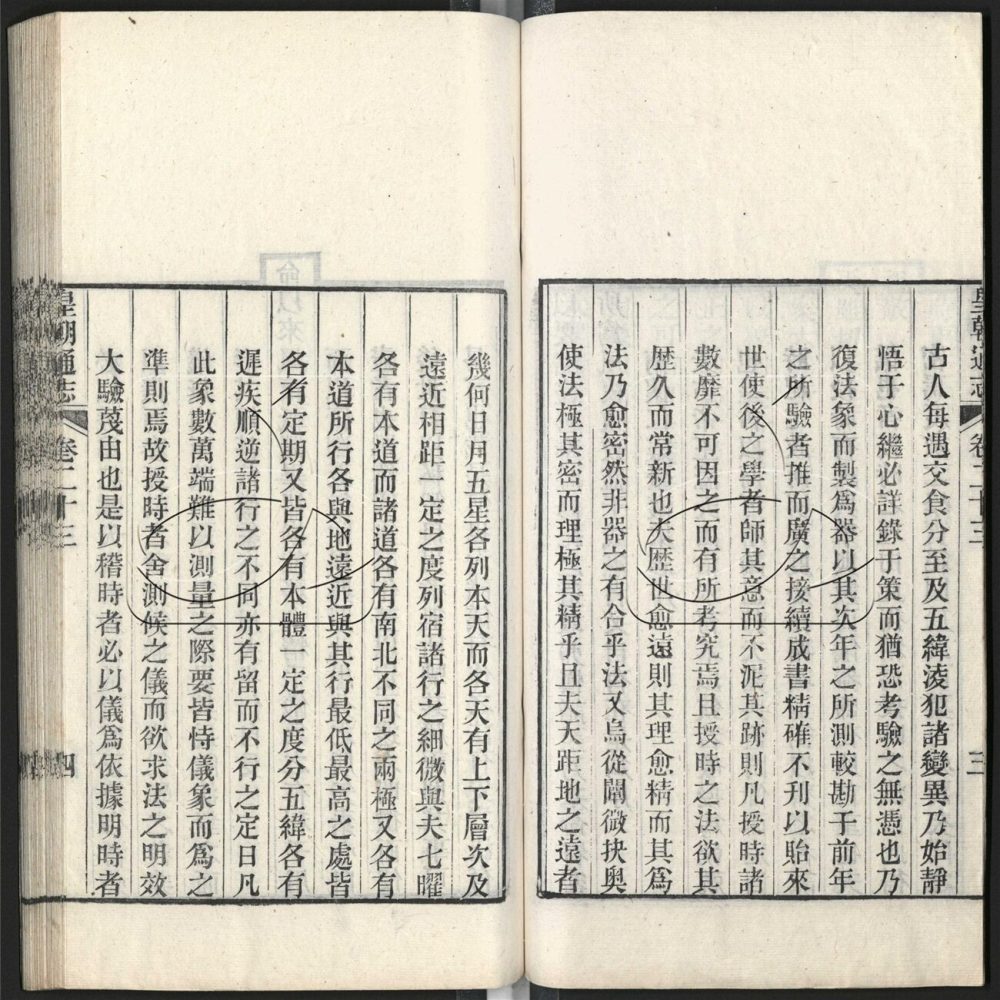 皇朝通志 卷二十三 三
古人每遇交食分至及五緯淩犯諸變異乃始靜
悟于心繼必詳錄于策而猶恐考驗之無憑也乃
復法象而製爲器以其次年之所測較勘于前年
之所驗者推而廣之接續成書精確不刊以貽來
世使後之學者師其意而不泥其跡則凡授時諸
數靡不可因之而有所考究焉且授時之法欲其
歴久而常新也夫歴世愈遠則其理愈精而其爲
法乃愈密然非器之有合乎法又烏從闡微抉奥
使法極其密而理極其精乎且夫天距地之遠者
幾何日月五星各列本天而各天有上下層次及
遠近相距一定之度列宿諸行之細微與夫七曜
各有本道而諸道各有南北不同之兩極又各有
本道所行各與地遠近與其行最低最高之處皆
各有定期又皆各有本體一定之度分五緯各有
遲疾順逆諸行之不同亦有留而不行之定日凡
此象數萬端難以測量之際要皆恃儀象而爲之
準則焉故授時者舍測候之儀而欲求法之明效
大驗蔑由也是以稽時者必以儀爲依據明時者
皇朝通志 卷二十三 四